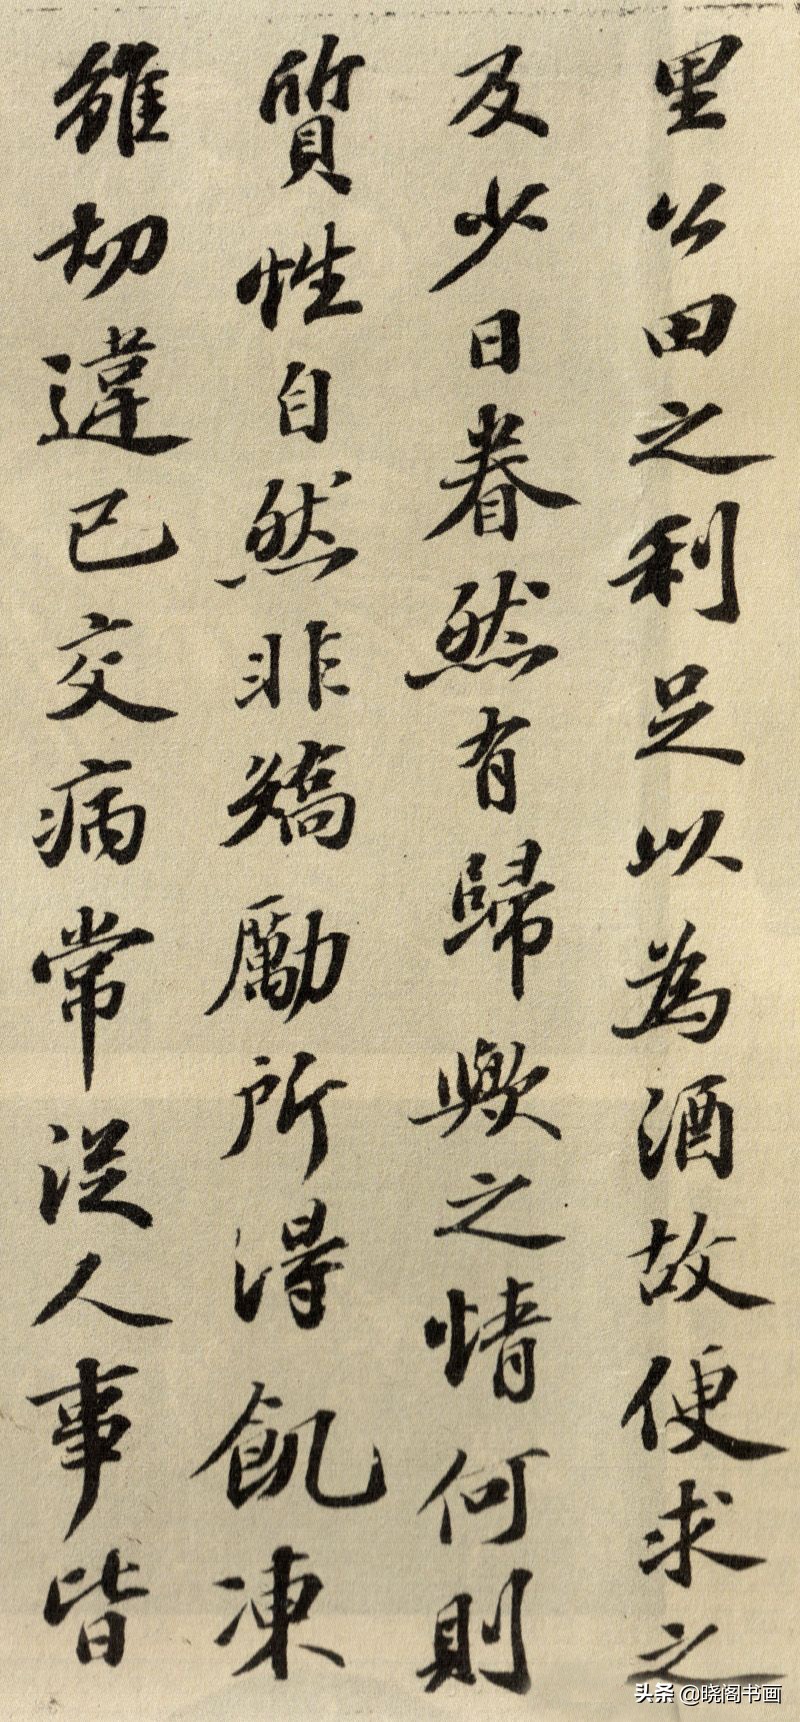 里公田之利足以為酒故便求之
及少日眷然有歸歟之情何則
質性自然非矯勵所得飢凍
雖切違己交病常從人事皆
头条 @晓阁书画